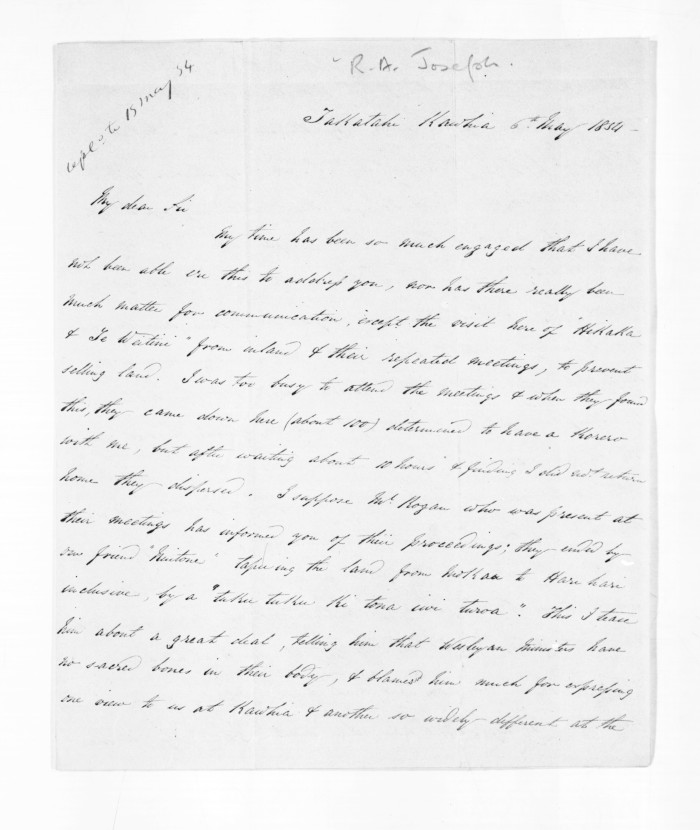 "R. A. Joseph.
repd to 15 May 54
Takatahi Kawhia 6th May 1854 -
My dear Sir
My time has been so much engaged that I have
not been able ere this to address you, nor has there really been
much matter for communication, except the visit here of "Hikaka
& Te Watini" from inland & their repeated meetings, to prevent
selling land. I was too busy to attend the meetings & when they found
this, they came down here (about 100) determined to have a Korero
with me, but after waiting about 10 hours & finding I did not return
home they dispersed. I suppose Mr Rogan who was present at
their meetings has informed you of their proceedings; they ended by
our friend "Kintone" tapuing the land from Mokau to Haruhari
inclusive, by a "tuku tuku ki tona iwi turoa". This I tease
him about a great deal, telling him that Wesleyan Ministers have
no sacred bones in their body, & blamed him much for expressing
one view to us at Kawhia & another so widely different at the